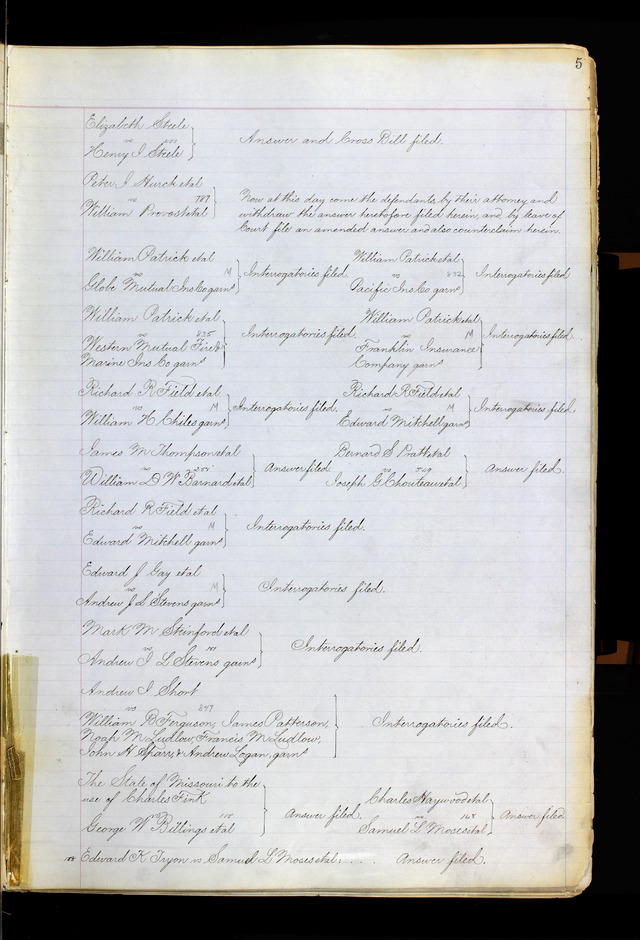 5
Elizabeth Steele
vs
Henry I Steele
Answer and Cross Bill filed.
Peter I Hurck etal
vs 787
William Provost etal
Now at this day come the defendants by their attorney and
withdraw the answer heretofore filed herein, and by leave of
Court file an amended answer and also counterclaim herein.
William Patrick etal
vs M
Globe Mutual Ins Co garns
Interrogatories filed.
William Patrick etal
vs 832
Pacific Ins Co garns
Interrogatories filed
William Patrick etal
vs 835
Western Mutual Fire &
Marine Ins Co garns
Interrogatories filed.
William Patrick etal
vs M
Franklin Insurance
Company garns
Interrogatories filed.
Richard R Field etal
vs M
William H Chiles garns
Interrogatories filed.
Richard R Field etal
vs M
Edward Mitchell garns
Interrogatories filed.
James M Thompson etal
vs
William D W Barnard etal
Answer filed
Bernard S Pratt etal
vs 749
Joseph G Chouteau etal
Answer filed.
Richard R Field etal
vs M
Edward Mitchell garns
Interrogatories filed.
Edward J Gay etal
vs M
Andrew J L Stevens garns
Interrogatories filed.
Mark M Steinford etal
vs
Andrew I L Stevens garns
Interrogatories filed.
Andrew I Short
vs 847
William B Ferguson, James Patterson,
Noah M Ludlow, Francis M Ludlow,
John H Sparr, & Andrew Logan, garns
Interrogatories filed.
The State of Missouri to the
use of Charles Fink
vs
George W Billings etal
Answer filed.
Charles Haywood etal
vs 168
Samuel L Moses etal
Answer filed
Edward K Tryon vs Samuel L Moses etal . . . . Answer filed.